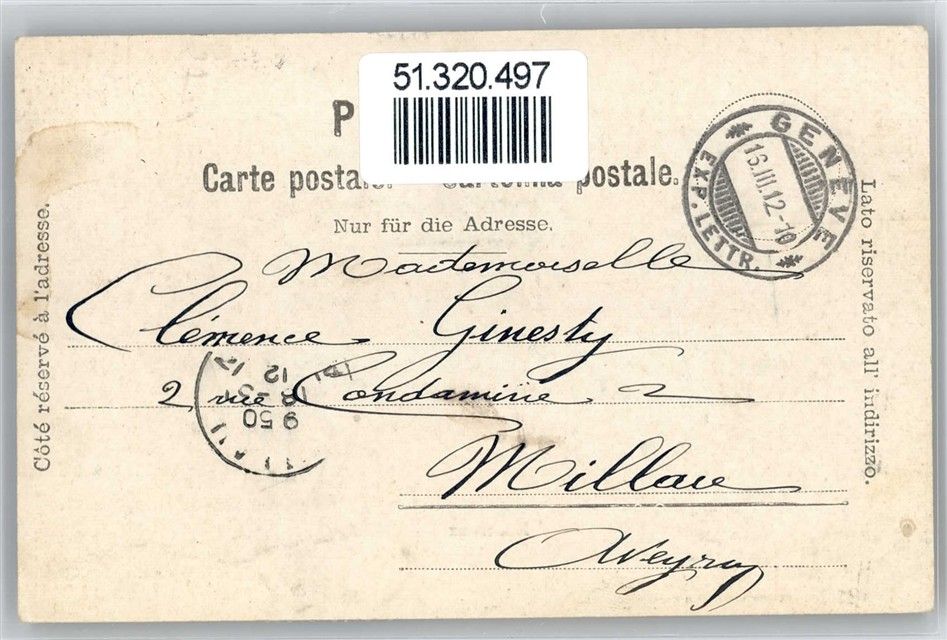 51.320.497
P
Carte postale. Cartolina postale.
Nur für die Adresse.
GENÈVE
16.III.12-10
EXP. LETTR.
Côté réservé à l'adresse.
Lato riservato all' indirizzo.
Mademoiselle
Clémence Ginesty
2 rue Condamine 2
Millau
Aveyron
9 50
12